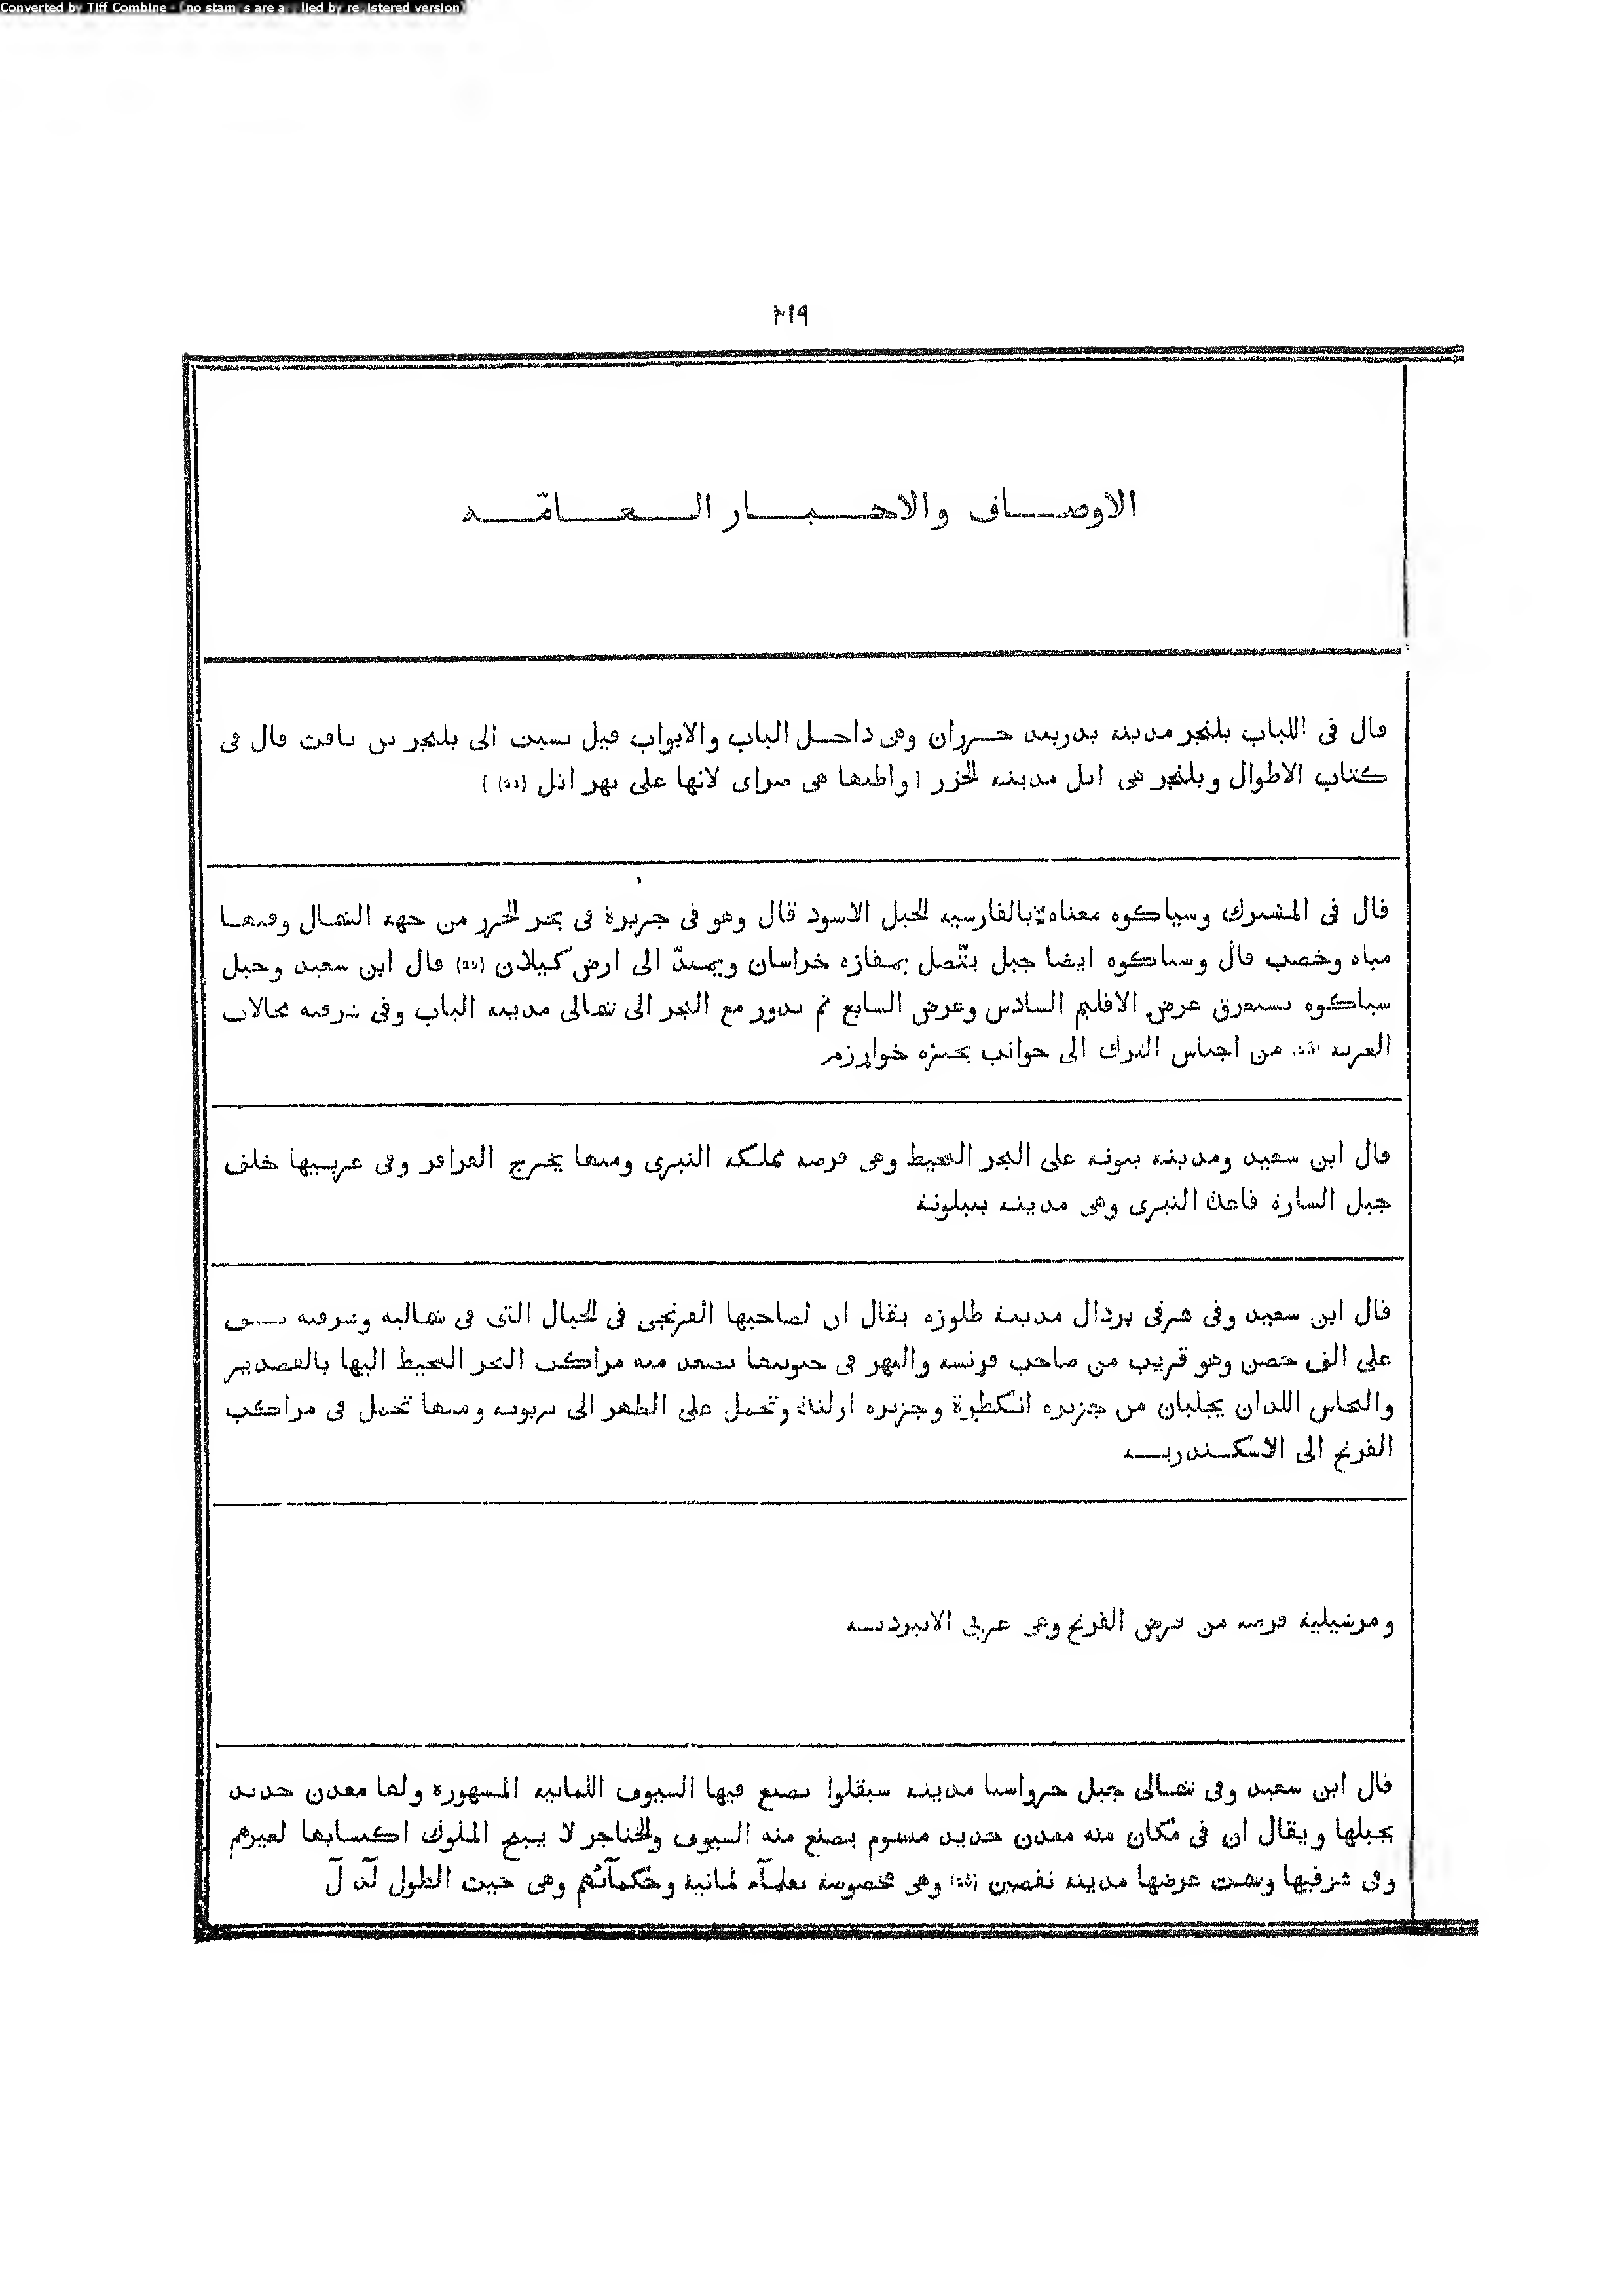 Converted by Tiff Combine - (no stamps are applied by registered version)
٢١٩
الاوصاف والاخبار العامّة
قال فى اللباب بلنجر مدينة بدربند خزران وهى داخل الباب والابواب قيل نسبت الى بلنجر بن يافث قال فى
كتاب الاطوال وبلنجر هى اتل مدينة الخزر واظنها هى صراى لانها على نهر اتل
قال فى المشترك وسياكوه معناه بالفارسية الجبل الاسود قال وهو فى جزيرة فى بحر الخزر من جهة الشمال وفيها
مياه وخصب قال وسياكوه ايضا جبل يتّصل بمفازة خراسان ويمتدّ الى ارض كيلان قال ابن سعيد وجبل
سياكوه يستغرق عرض الاقليم السادس وعرض السابع ثم يدور مع البحر الى شمالى مدينة الباب وفى شرقيه مجالات
الغزية من اجناس الترك الى جوانب بحيرة خوارزم
قال ابن سعيد ومدينة بيونة على البحر المحيط وهى فرضة مملكة النبرى ومنها يخرج القراقر وفى غربيها خلف
جبل السارة قاعدة النبرى وهى مدينة بنبلونة
قال ابن سعيد وفى شرقى بردال مدينة طلوزة يقال ان لصاحبها الفرنجى فى الجبال التى فى شمالية وشرقية نيف
على الف حصن وهو قريب من صاحب فرنسة والنهر فى جنوبيها تصعد منه مراكب البحر المحيط اليها بالقصدير
والنحاس اللذان يجلبان من جزيرة انكلطرة وجزيرة ارلندة وتحمل على الظهر الى نربونة ومنها تحمل فى مراكب
الفرنج الى الاسكندرية
ومرشيلية فرضة من فرض الفرنج وهى غربى الانبردية
قال ابن سعيد وفى شمالى جبل خرواسيا مدينة سبقلوا تصنع فيها السيوف اللمانية المشهورة ولها معدن حديد
بجبلها ويقال ان فى مكان منه معدن حديد مسموم يصنع منه السيوف والخناجر لا يبيح الملوك اكتسابها لغيرهم
وفى شرقيها وسمت عرضها مدينة نقصين وهى مخصوصة بعلمآء لمانية وحكمآئهم وهى حيث الطول